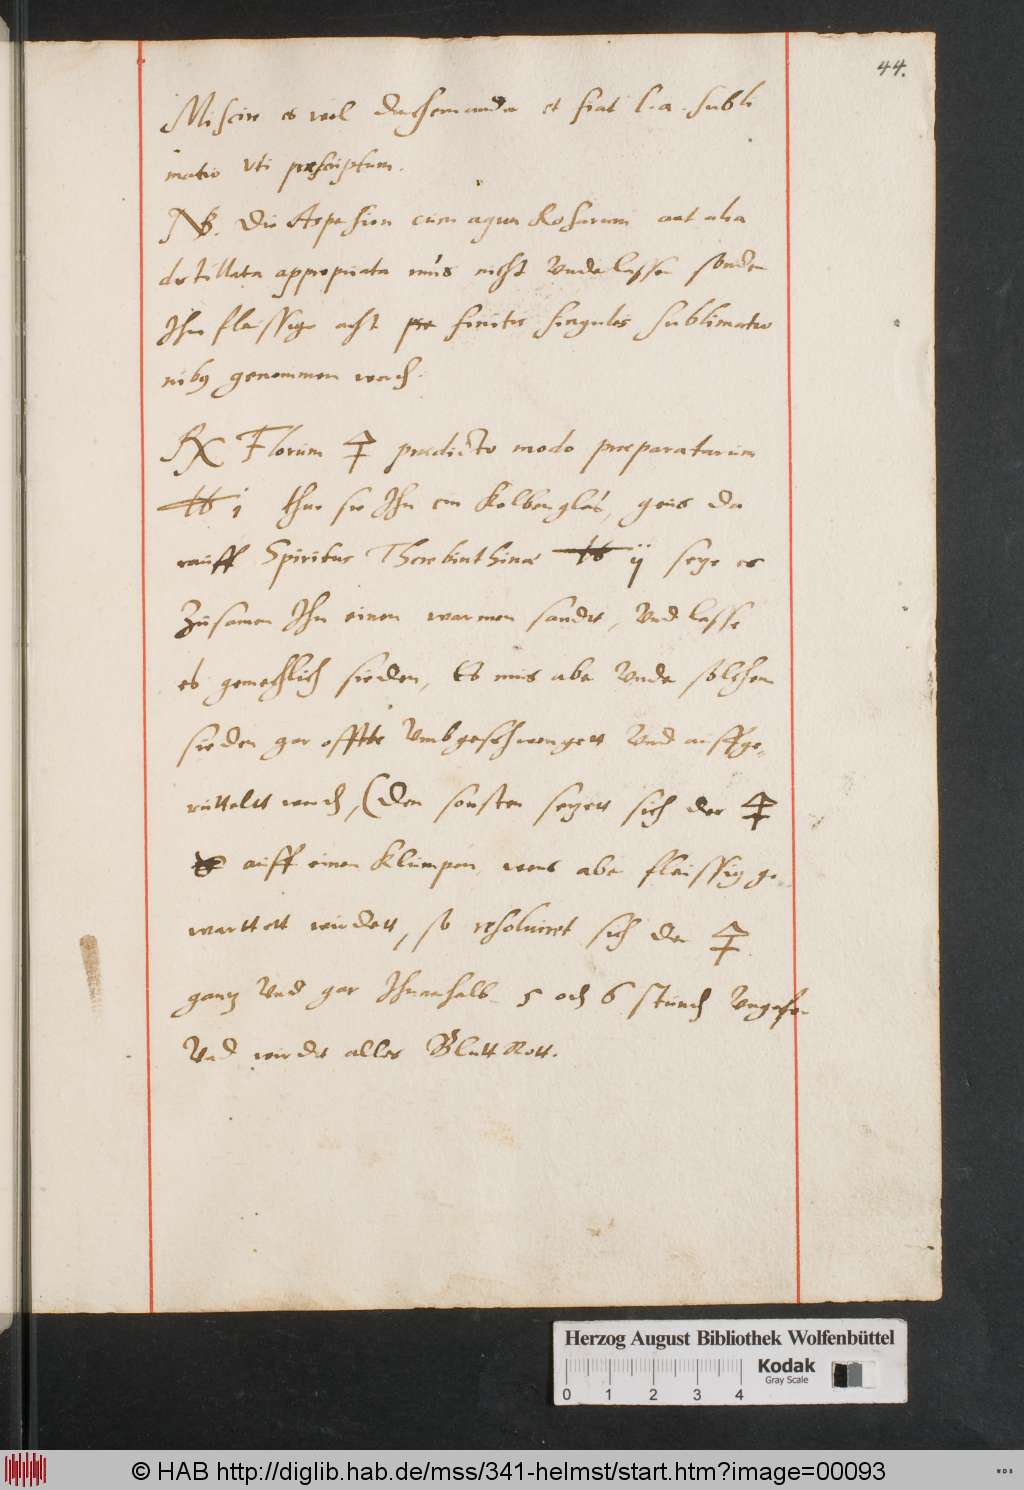 44.
Miscire es wol durcheinander et fiat l. a. subli
matio uti præscriptum.
NB. Die Aspersion cum aqua Rosarum aut alia
destillata appropriata mus nicht underlassen sonder
Ihn fleissige acht post finitis singulis sublimatio
nibus genommen werden.
Rx Florum 🜍 prædicto modo præparatarum
℔ j thue sie Ihn ein Kolbenglas, geus da
rauff Spiritus Therebinthinæ ℔ ij seze es
Zusamen Ihn einen warmen sandt, Und lasse
es gemechlich sieden, Es mus aber Under solchem
sieden gar offtte Umbgeschwengett Und auffge-
rüttelt werden, (den sonsten sezett sich der 🜍
auff einen Klumpen, wens aber fleissig ge
warttett wirdett, so resolviret sich der 🜍
ganz Und gar Ihnnerhalb 5 oder 6 stunden Ungefer
Und wirdt alles Blutt Rott.
Herzog August Bibliothek Wolfenbüttel
0 1 2 3 4
Kodak
Gray Scale
© HAB http://diglib.hab.de/mss/341-helmst/start.htm?image=00093